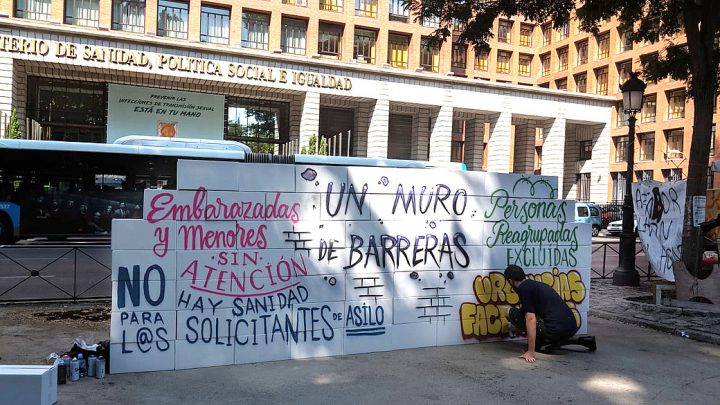 TERIO DE SANIDAD, POLITICA SOCIAL E IGUALDAD
PREVENIR LAS
INFECCIONES DE TRANSMISIÓN SEXUAL
ESTÁ EN TU MANO
Embarazadas
y Menores
SIN
ATENCIÓN
UN MURO
DE BARRERAS
Personas
Reagrupadas
EXCLUIDAS
NO HAY SANIDAD
PARA L@S SOLICITANTES DE ASILO